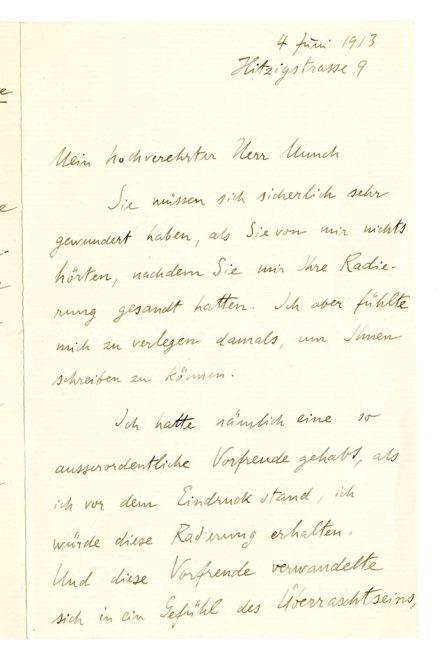 4 Juni 1913
Hitzigstrasse 9
Mein hochverehrter Herr Munch
Sie müssen sich sicherlich sehr
gewundert haben, als Sie von mir nichts
hörten, nachdem Sie mir Ihre Radie-
rung gesandt hatten. Ich aber fühlte
mich zu verlegen damals, um Ihnen
schreiben zu können.
Ich hatte nämlich eine so
ausserordentliche Vorfreude gehabt, als
ich vor dem Eindruck stand, ich
würde diese Radierung erhalten.
Und diese Vorfreude verwandelte
sich in ein Gefühl des Überraschtseins,